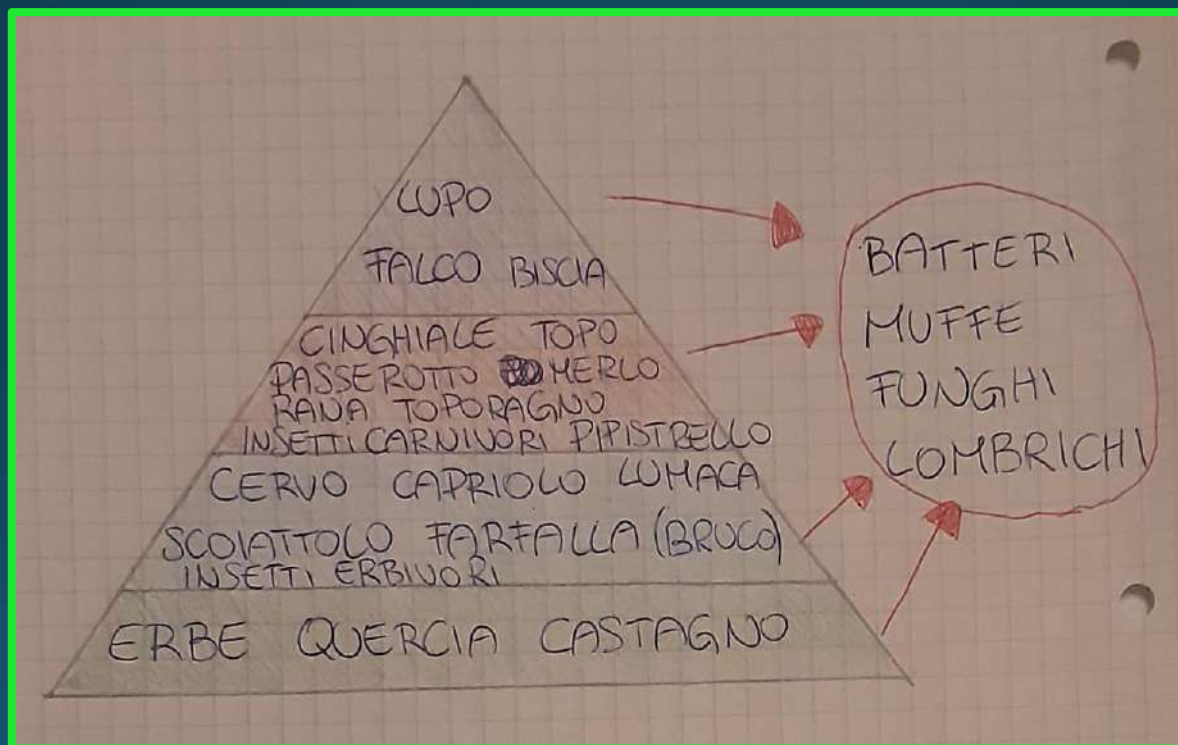 LUPO
FALCO BISCIA
CINGHIALE TOPO
PASSEROTTO MERLO
RANA TOPORAGNO
INSETTI CARNIVORI PIPISTRELLO
CERVO CAPRIOLO LUMACA
SCOIATTOLO FARFALLA (BRUCO)
INSETTI ERBIVORI
ERBE QUERCIA CASTAGNO
BATTERI
MUFFE
FUNGHI
LOMBRICHI